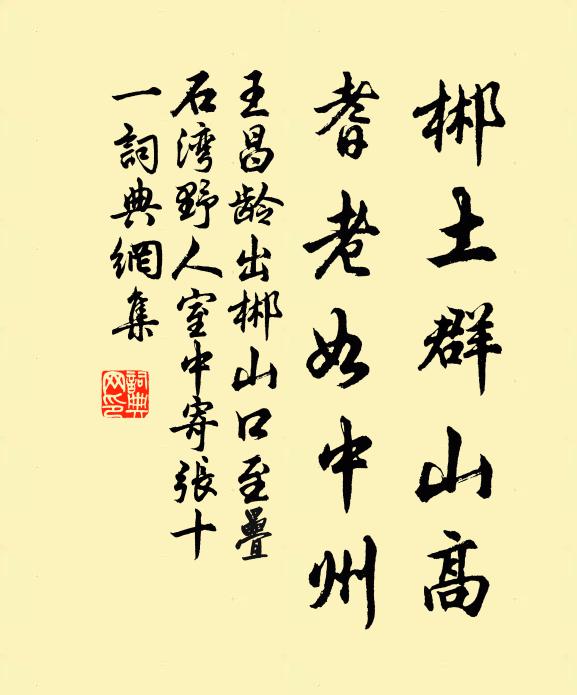 郴土群山高
耆老如中州
王昌龄出郴山口至疊
石湾野人室中寄張十
一詞典網集
詞典
网印